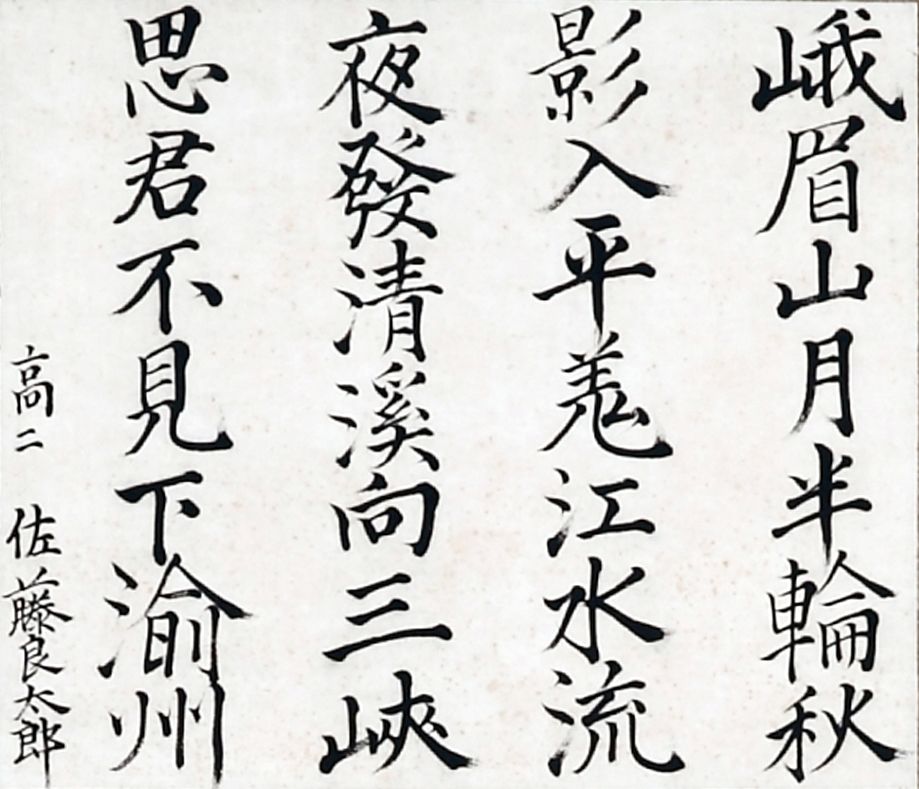 峨眉山月半輪秋
影入平羗江水流
夜發清溪向三峽
思君不見下渝州
高二 佐藤良太郎